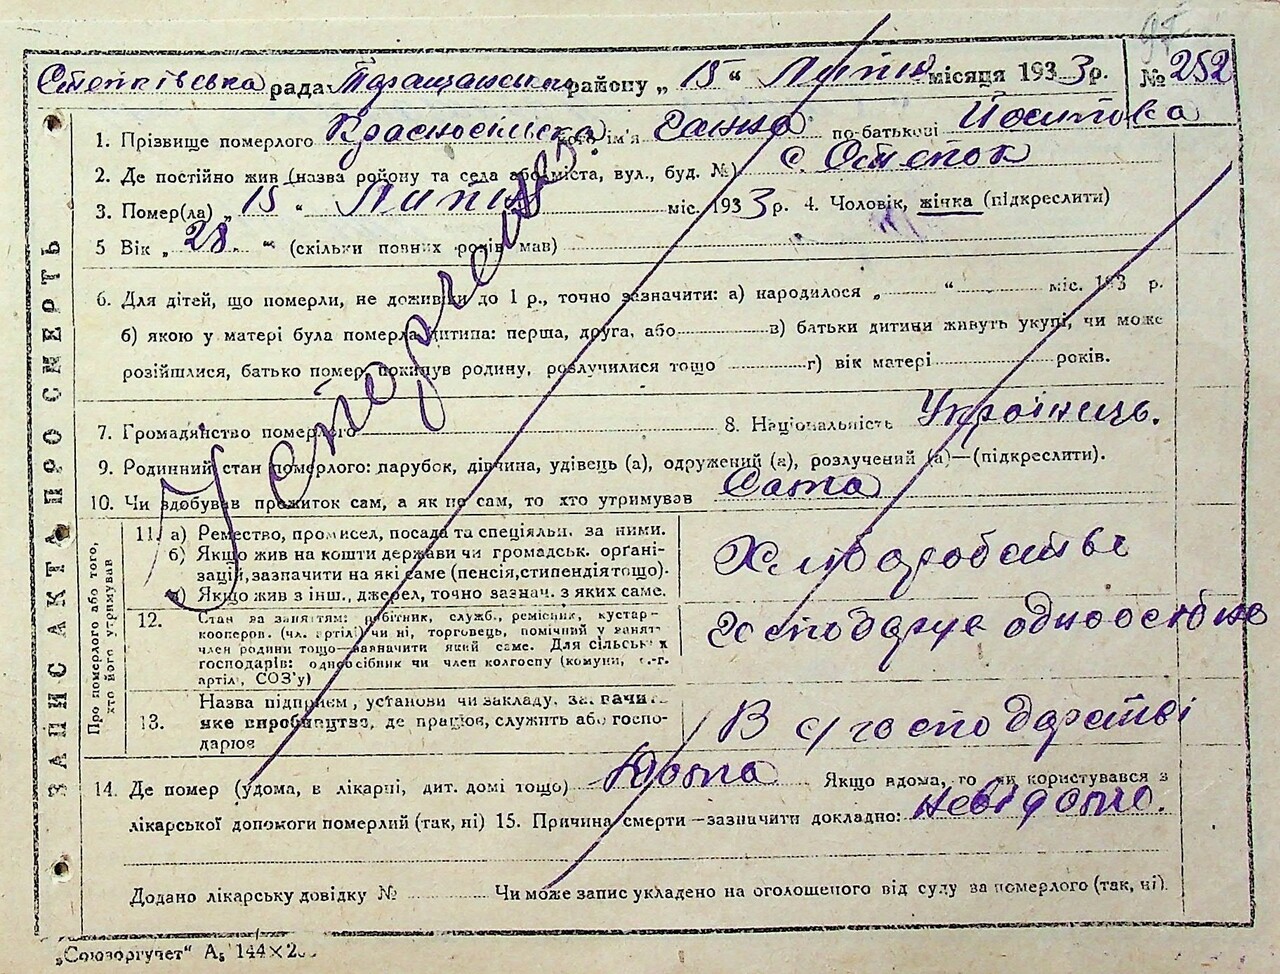 95
Степківська рада Таращанського району „ 15 “ Липня місяця 1933 р. № 252
1. Прізвище померлого Красносільска його ім'я Ганна по-батькові Йосипова
2. Де постійно жив (назва району та села або міста, вул., буд. №) с. Степок
3. Помер(ла) „ 15 “ Липня міс. 1933 р. 4. Чоловік, жінка (підкреслити)
5 Вік „ 28. “ (скільки повних років мав)
6. Для дітей, що померли, не доживши до 1 р., точно зазначити: а) народилося „ “ міс. 193 р.
б) якою у матері була померла дитина: перша, друга, або в) батьки дитини живуть укупі, чи може
розійшлися, батько помер, покинув родину, розлучилися тощо г) вік матері років.
7. Громадянство померлого 8. Національність Українець.
9. Родинний стан померлого: парубок, дівчина, удівець (а), одружений (а), розлучений (а)—(підкреслити).
10. Чи здобував прожиток сам, а як не сам, то хто утримував Сама
ЗАПИСАКТА ПРО СМЕРТЬ
Про померлого або того, хто його утримував
11. а) Ремество, промисел, посада та спеціяльн. за ними.
б) Якщо жив на кошти держави чи громадськ. орґані-
зацій, зазначити на які саме (пенсія, стипендія тощо).
в) Якщо жив з інш., джерел, точно зазнач. з яких саме.
Хліборобство
12. Стан за заняттям: робітник, служб., ремісник, кустар-
кооперов. (чл. артілі) чи ні, торговець, помічний у занят.
член родини тощо—зазначити який саме. Для сільських
господарів: одноосібник чи член колгоспу (комуни, с.-г.
артіл, СОЗ'у)
Господарує одноосібно
13. Назва підприєм., установи чи закладу, зазначити
яке виробництво, де працює, служить або госпо-
дарює
В с/господарстві
14. Де помер (удома, в лікарні, дит. домі тощо) Дома Якщо вдома, то чи користувався з
лікарської допомоги померлий (так, ні) 15. Причина смерти—зазначити докладно: невідомо.
Додано лікарську довідку № Чи може запис укладено на оголошеного від суду за померлого (так, ні).
„Союзоргучет“ А5 144×2